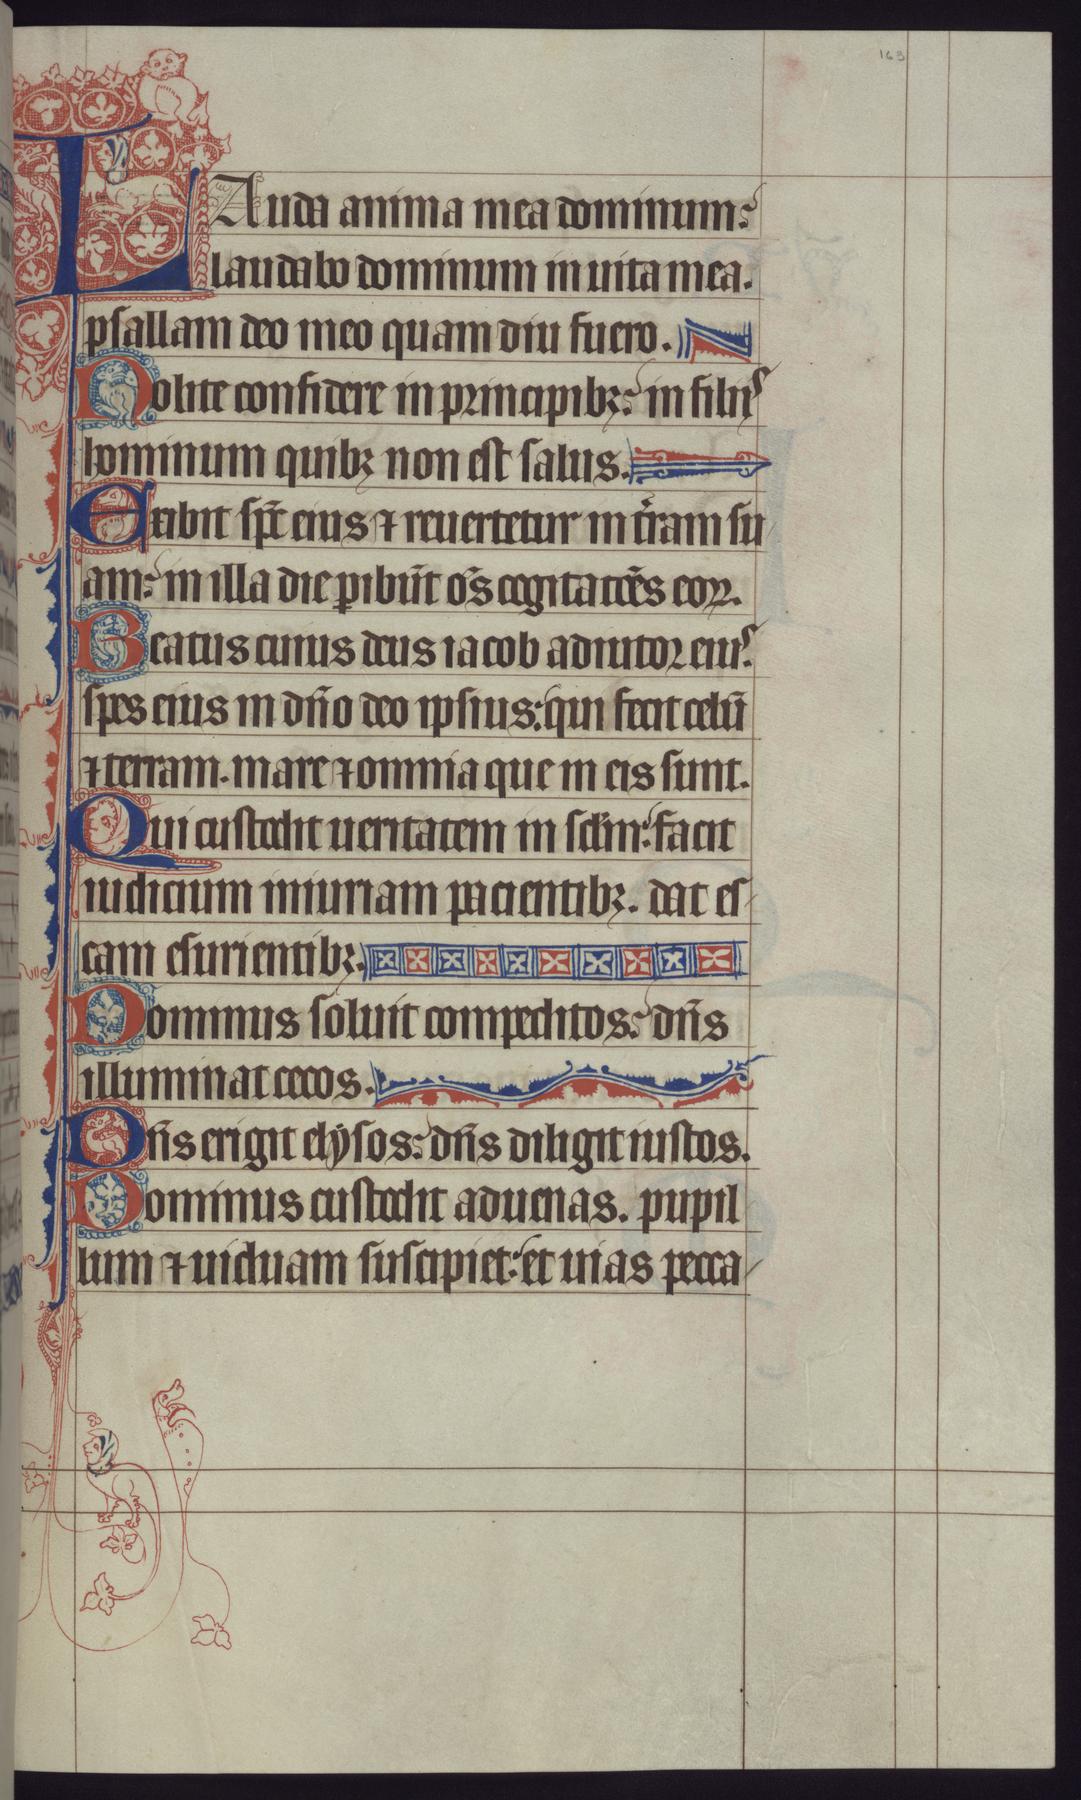 163
LAuda anima mea dominum:
laudabo dominum in uita mea.
psallam deo meo quam diu fuero.
Nolite confidere in principibꝫ: in filijs
hominum quibꝫ non est salus.
Exibit sp̅c eius ⁊ reuertetur in t̓ram su
am: in illa die ꝑibūt o̅s cogitatōes eoꝝ.
Beatus cuius deus iacob adiutor eius:
spes eius in dn̅o deo ipsius: qui fecit celū
⁊ terram. mare ⁊ omnia que in eis sunt.
Qui custodit ueritatem in sc̅lm: facit
iudicium iniuriam pacientibꝫ. dat es
cam esurientibꝫ.
Dominus soluit compeditos: dn̅s
illuminat cecos.
Dn̅s erigit elysos: dn̅s diligit iustos.
Dominus custodit aduenas. pupil
lum ⁊ uiduam suscipiet: et uias pecca